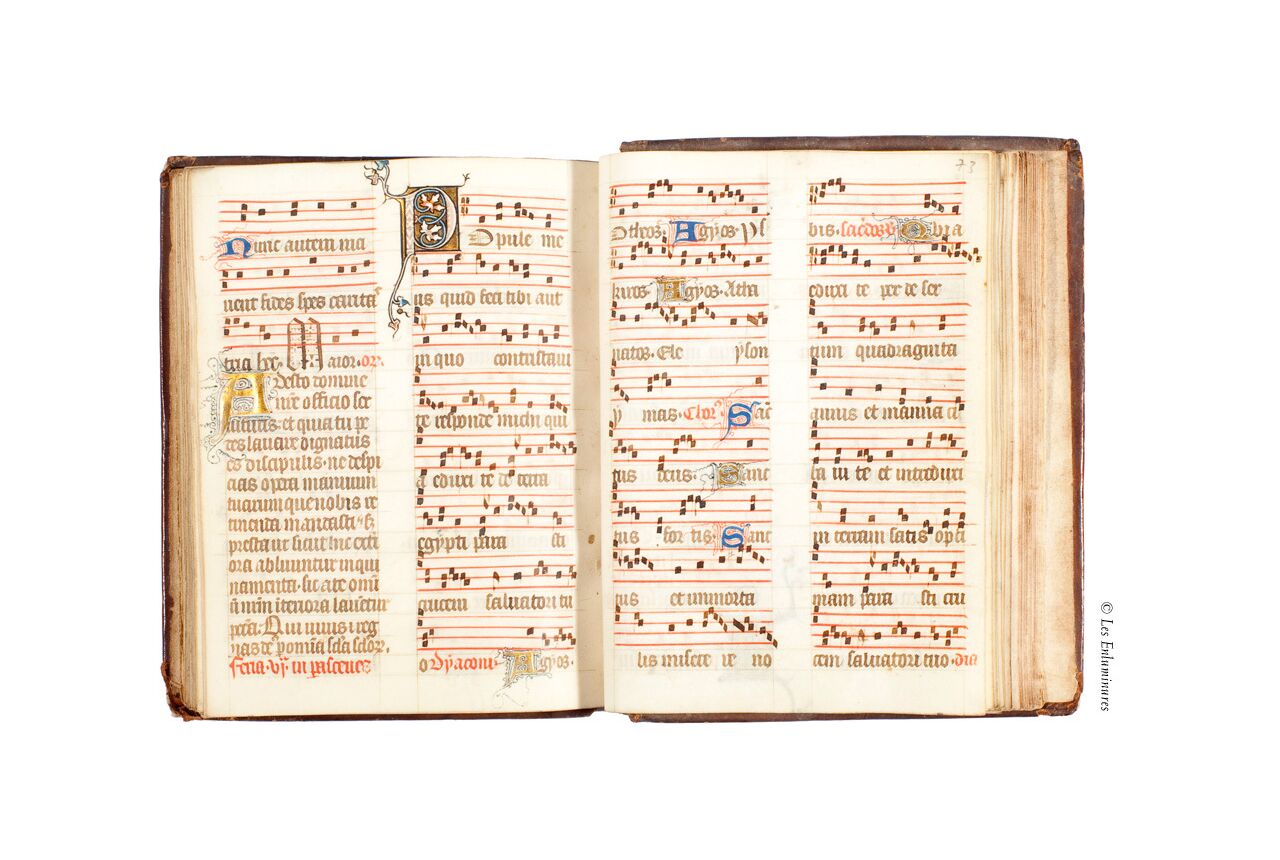 Nunc autem ma
neat fides spes carita
tria hec. Maior. or.
Adesto domine
nre officio ser
uitutis. et quia tu pe
des lauare dignatus
es discipulis. ne despi
cias opera manuum
tuarum que nobis re
tinenda mandasti. sz
presta ut sicut hic exteri
ora abluuntur inqui
namenta. sic a te omniu
Qui uiuis
feria. vj. in parasceues
Popule me
us quid feci tibi aut
in quo contristaui
te responde michi qui
a eduxi te de terra
egypti para sti
crucem saluatori tu
o Dyaconi. Agyos.
Otheos. Agyos. ys
kiros Agyos. Atha
natos. Ele yson
y mas. Chor. Sanc
tus deus. Sanc
tus for tis. Sanc
tus et immorta
lis misere re no
73
bis. sacerdos Quia
eduxi te per deser
tum quadraginta
annis et manna ci
ba ui te et introduxi
in terram satis opti
mam para sti cru
cem saluatori tuo. dia
© Les Enluminures